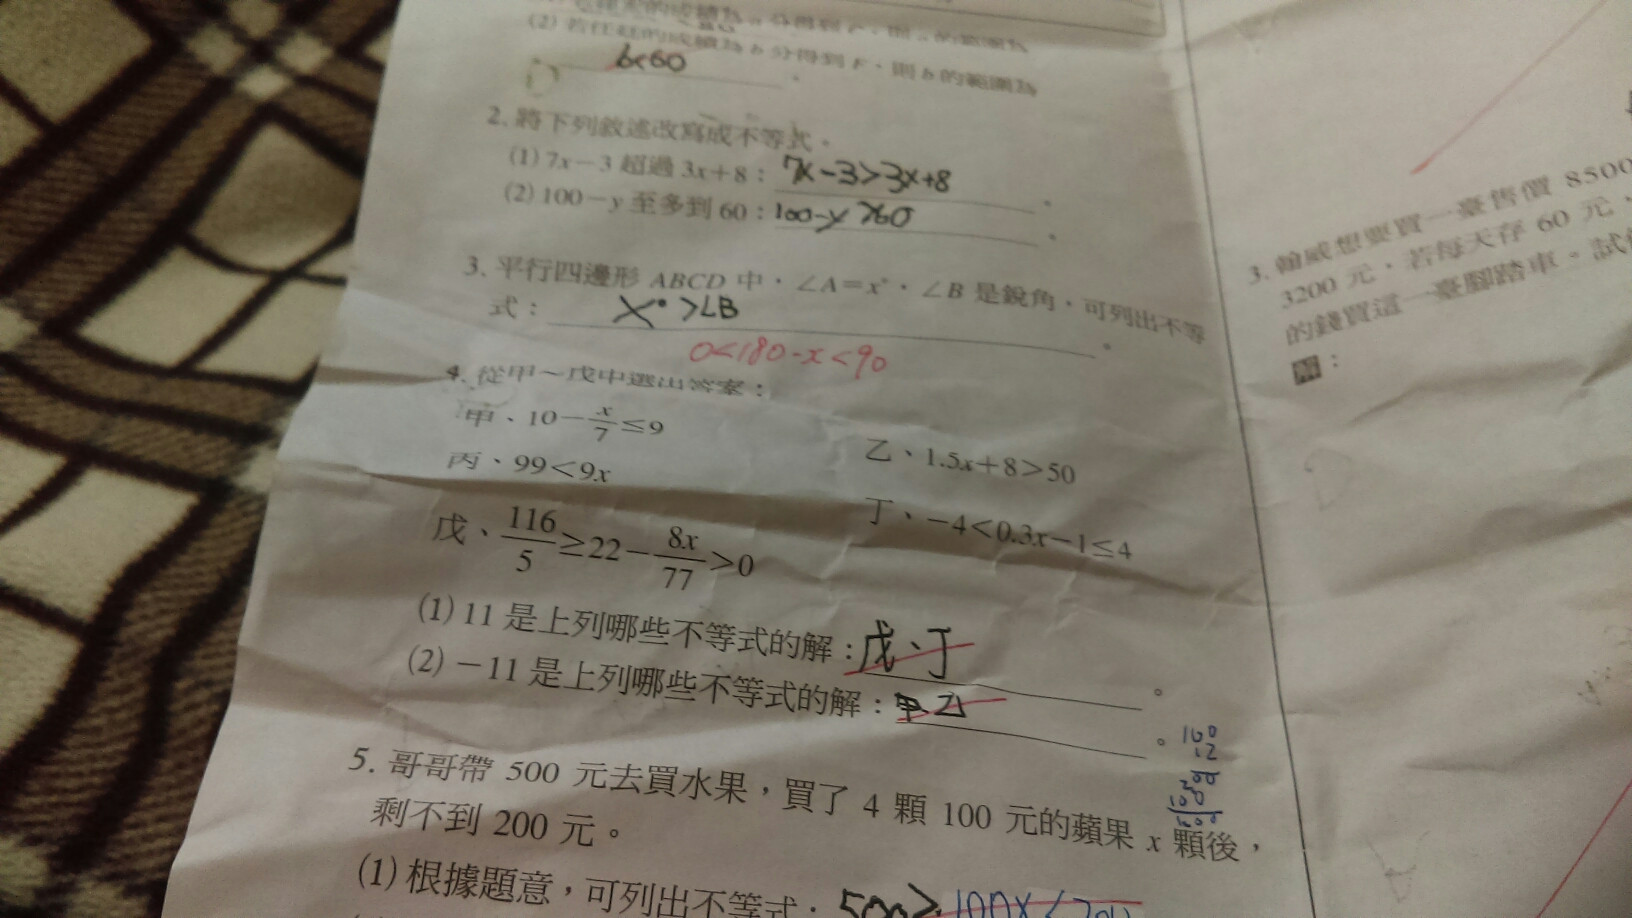 (2) 若任廷的成績為 b 分得到 F,則 b 的範圍為
b<60 。
2. 將下列敘述改寫成不等式。
(1) 7x-3 超過 3x+8: 7x-3>3x+8 。
(2) 100-y 至多到 60: 100-y >60 。
3. 平行四邊形 ABCD 中,∠A=x°,∠B 是銳角,可列出不等
式: x°>∠B 。
0<180-x<90
4. 從甲~戊中選出答案:
甲、10-x/7≤9
乙、1.5x+8>50
丙、99<9x
丁、-4<0.3x-1≤4
戊、116/5≥22-8x/77>0
(1) 11 是上列哪些不等式的解: 戊、丁 。
(2) -11 是上列哪些不等式的解: 甲乙 。
100
12
5. 哥哥帶 500 元去買水果,買了 4 顆 100 元的蘋果 x 顆後,
剩不到 200 元。
(1) 根據題意,可列出不等式: 500>
3. 翰威想要買一臺售價 8500
3200 元,若每天存 60 元,
的錢買這一臺腳踏車。試
解: